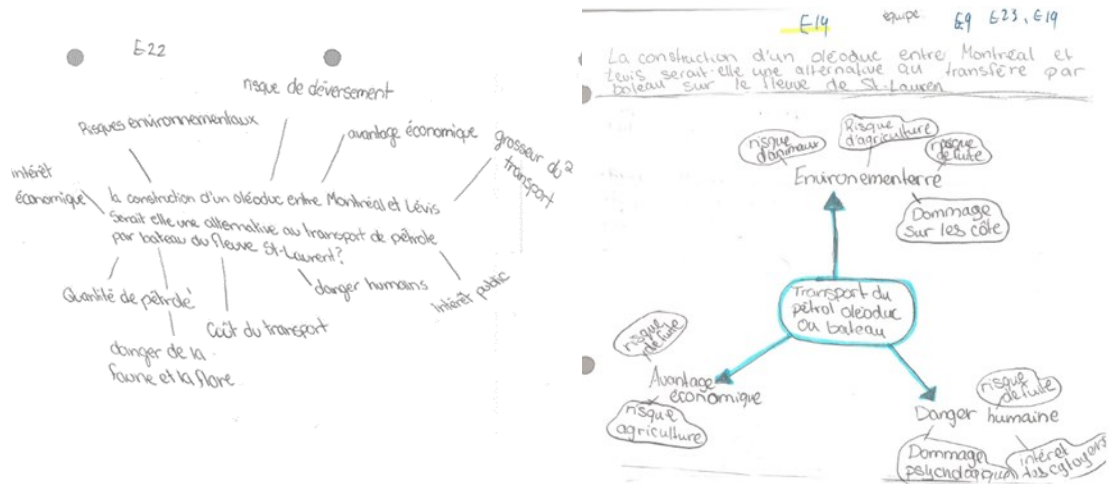 E-22
risque de déversement
Risques environnementaux
avantage économique
grosseur du
transport
intérêt
économique
la construction d'un oléoduc entre Montréal et Lévis
serait elle une alternative au transport de pétrole
par bateau du fleuve St-Laurent?
Quantité de pétrole
danger de la
faune et la flore
Coût du transport
danger humains
Intérêt public
E-14
équipe
E9 E23, E19
La construction d'un oléoduc entre Montréal et
Levis serait-elle une alternative au transfère par
bateau sur le fleuve de St-Lauren
risque
d'animaux
Risque
d'agriculture
risque
de fuite
Environementerre
Dommage
sur les côte
Transport du
pétrol oléoduc
ou bateau
risque
de fuite
Avantage
économique
risque
agriculture
risque
de fuite
Danger humaine
Dommage
psychologique
intéret
des citoyens